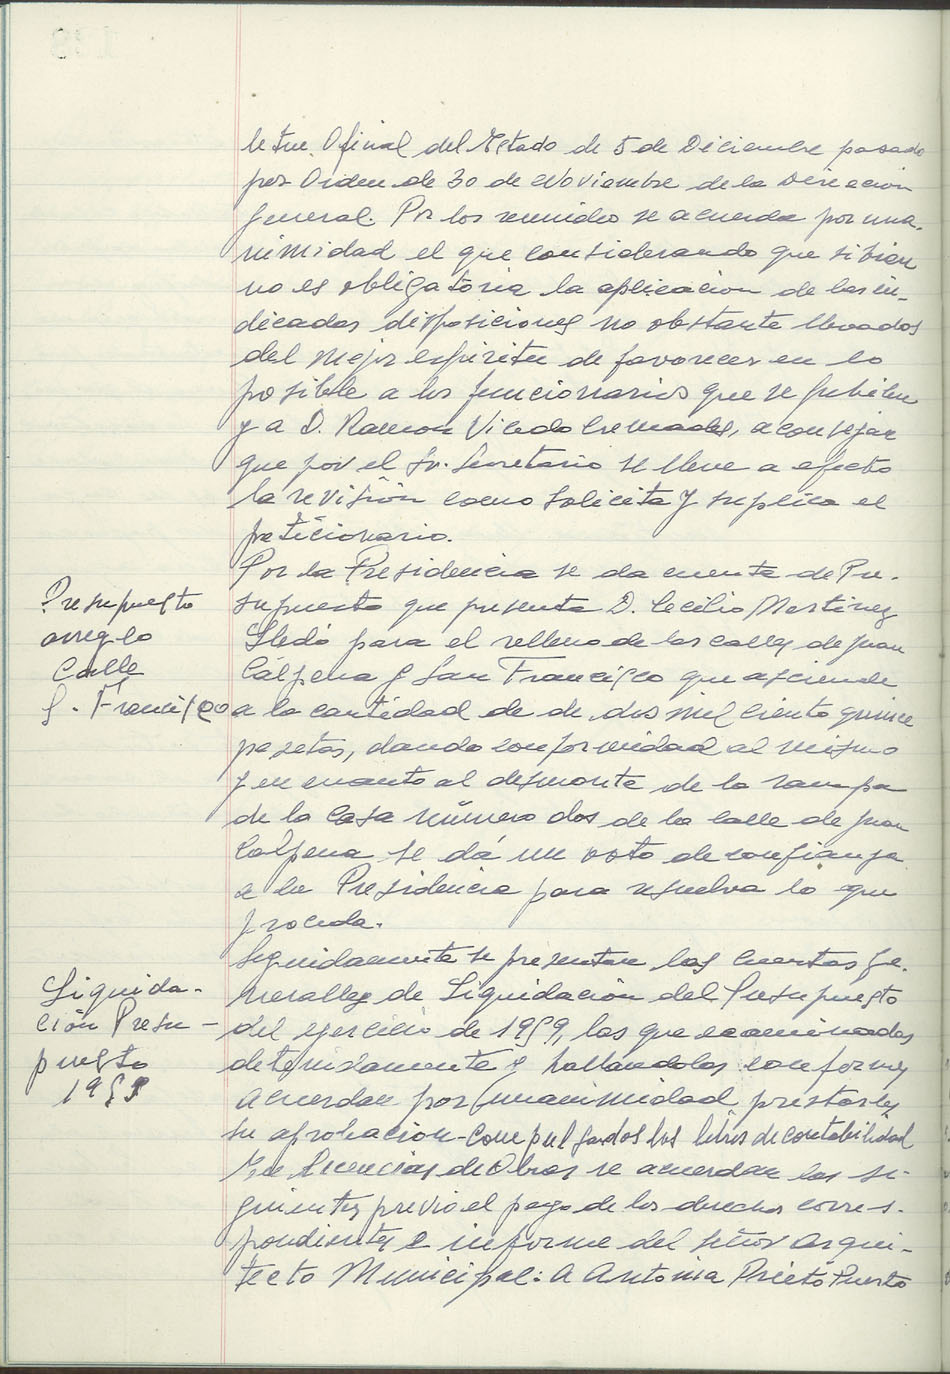 letin Oficial del Estado de 5 de Diciembre pasado
por Orden de 30 de Noviembre de la Dirección
General. Por los reunidos se acuerda por una-
nimidad el que considerando que si bien
no es obligatoria la aplicación de las in-
dicadas disposiciones no obstante llevados
del mejor espíritu de favorecer en lo
posible a los funcionarios que se jubilen
y a D. Ramon Vicedo Cremades, aconsejar
que por el Sr. Secretario se lleve a efecto
la revisión como solicita y suplica el
peticionario.
Por la Presidencia se da cuenta de Pre-
Presupuesto
arreglo
Calle
S. Francisco
supuesto que presenta D. Cecilio Martinez
Lledó para el relleno de las calles de Juan
Calpena y San Francisco que asciende
a la cantidad de de dos mil ciento quince
pesetas, dando conformidad al mismo
y en cuanto al desmonte de la rampa
de la casa número dos de la calle de Juan
Calpena se dá un voto de confianza
a la Presidencia para resuelva lo que
proceda.
Seguidamente se presentan las cuentas Ge-
Liquida-
ción Presu-
puesto
1959
nerales de Liquidación del Presupuesto
del ejercicio de 1959, las que examinadas
detenidamente y hallandolas conformes
acuerdan por unanimidad prestarles
su aprobación-compulsados los libros de contabilidad
De Licencias de Obras se acuerdan las si-
guientes previo el pago de los derechos corres-
pondientes e informe del señor Arqui-
tecto Municipal: A Antonia Prieto Puerto